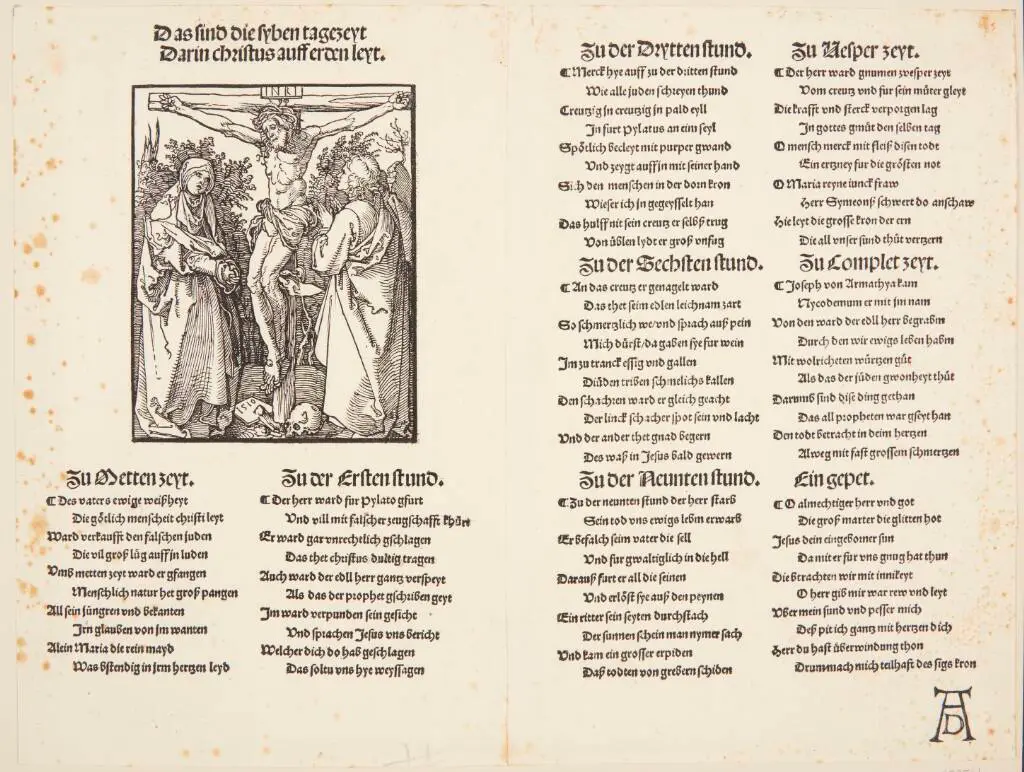 Das sind die syben tagezeyt
Darin christus auff erden leyt.
INRI
1510
Zu Metten zeyt.
Des vaters ewige weißheyt
Die götlich menscheit christi leyt
Ward verkaufft den falschen juden
Die vil groß lüg auff jn luden
Vmb metten zeyt ward er gfangen
Menschlich natur het groß pangen
All sein jüngren vnd bekanten
Jm glauben von jm wanten
Alein Maria die rein mayd
Was bstendig in jrm hertzen leyd
Zu der Ersten stund.
Der herr ward fur Pylato gfurt
Vnd vill mit falscher zeugschafft
Er ward gar vnrechtlich gschlagen
Das thet christus dultig tragen
Auch ward der edll herr gantz verspeyt
Als das der prophet gschriben geyt
Jm ward verpunden sein gesicht
Vnd sprachen Jesus vns bericht
Welcher dich do hab geschlagen
Das soltu vns hye weyssagen
Zu der Drytten stund.
Merck hye auff zu der dritten stund
Wie alle juden schreyen thund
Creutzig jn creutzig jn pald eyll
Jn furt pylatus an eim seyl
Spötlich becleyt mit purper gwand
Vnd zeygt auff jn mit seiner hand
Sich den menschen in der dorn kron
Wie ser ich jn gegeysselt han
Das hulff nit sein creutz er selbß trug
Von üblen lydt er groß vnfug
Zu der Sechsten stund.
An das creutz er genagelt ward
Das thet seim edlen leichnam zart
So schmertzlich we/vnd sprach auß pein
Mich dürst/da gaben sye fur wein
Jm zu tranck essig vnd gallen
Die jüden triben schmelichs kallen
Den schachren ward er gleich geacht
Der linck schacher spot sein vnd lacht
Vnd der ander thet gnad begern
Des waß in Jesus bald gewern
Zu der Neunten stund.
Zu der neunten stund der herr starb
Sein tod vns ewigs lebm erwarb
Er befalch seim vater die sell
Vnd fur gwaltiglich in die hell
Darauß furt er all die seinen
Vnd erlöst sye auß den peynen
Ein ritter sein seyten durchstach
Der sunnen schein man nymer sach
Vnd kam ein grosser erpiden
Daß todten von grebern schiden
Zu Vesper zeyt.
Der herr ward gnumen zvesper zeyt
Vom creutz vnd fur sein müter gleyt
Die krafft vnd sterck verporgen lag
Jn gottes gmüt den selben tag
O mensch merck mit fleiß disen todt
Ein ertzney fur die grösten not
O Maria reyne iunckfraw
Herr Symeonß schwert do anschaw
Hie leyt die grosse kron der ern
Die all vnser sund thüt vertzern
Zu Complet zeyt.
Joseph von Armathya kam
Nycodemum er mit jm nam
Von den ward der edll herr begrabm
Durch den wir ewigs leben habm
Mit wolricheten würtzen güt
Als das der jüden gwonheyt thüt
Darumb sind dise ding gethan
Das all propheten war gseyt han
Den todt betracht in deim hertzen
Alweg mit fast grossem schmertzen
Ein gepet.
O almechtiger herr vnd got
Die groß marter die glitten hot
Jesus dein eingeborner sun
Da mit er fur vns gnug hat thun
Die betrachten wir mit innikeyt
O herr gib mir war rew vnd leyt
Vber mein sund vnd pesser mich
Deß pit ich gantz mit hertzen dich
Herr du hast überwindung thon
Drum mach mich teilhaft des sigs kron
AD